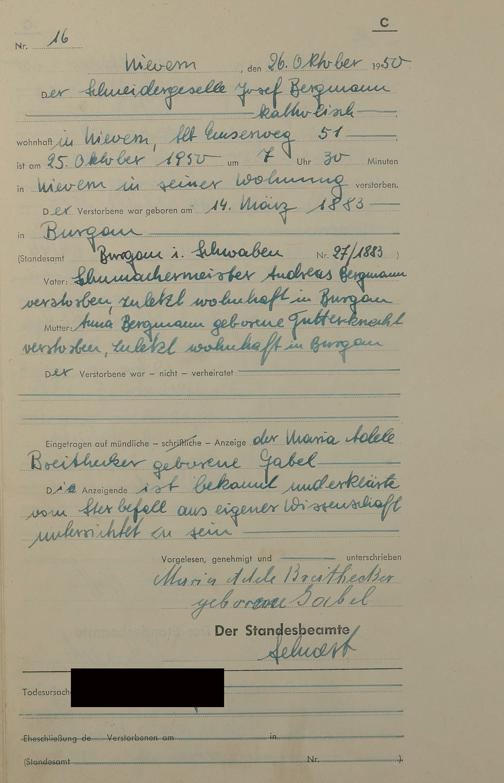 C
Nr. 16
Nievern, den 26. Oktober 1950
Der Schneidergeselle Josef Bergmann
katholisch
wohnhaft in Nievern, Alt Emserweg 51
ist am 25. Oktober 1950 um 7 Uhr 30 Minuten
in Nievern in seiner Wohnung verstorben.
Der Verstorbene war geboren am 14. März 1883
in Burgau
(Standesamt Burgau i. Schwaben Nr. 27/1883 )
Vater: Schumachermeister Andreas Bergmann
verstorben, zuletzt wohnhaft in Burgau
Mutter: Anna Bergmann geborene Gutterknecht
verstorben, zuletzt wohnhaft in Burgau
Der Verstorbene war – nicht – verheiratet
Eingetragen auf mündliche – schriftliche – Anzeige der Maria Adele
Breithecker geborene Gabel
Die Anzeigende ist bekannt und erklärte
vom Sterbefall aus eigener Wissenschaft
unterrichtet zu sein
Vorgelesen, genehmigt und unterschrieben
Maria Adele Breithecker
geborene Gabel
Der Standesbeamte
Todesursach
Eheschließung de Verstorbenen am in
(Standesamt Nr. )